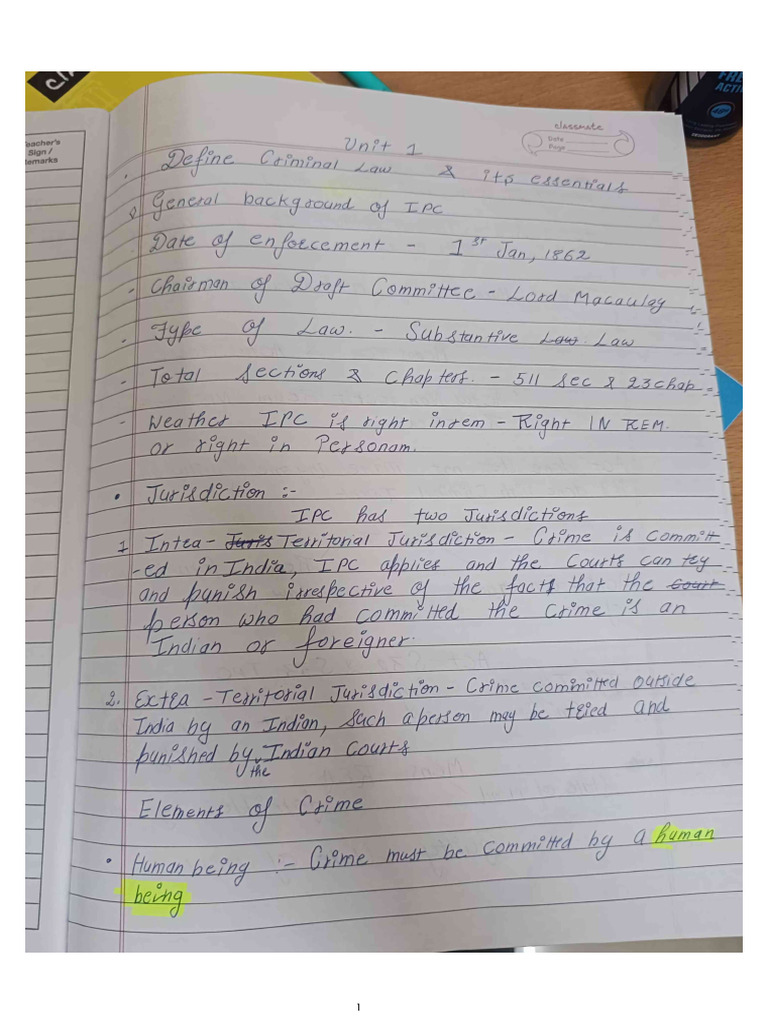 Teacher's
Sign /
Remarks
classmate
Date
Page
Unit 1
Define Criminal Law & its essentials
General background of IPC
Date of enforcement - 1st Jan, 1862
- Chairman of Draft Committee - Lord Macaulay
- Type of Law. - Substantive Law Law
- Total sections & Chapters. - 511 sec & 23 chap
- Weather IPC is right inrem - Right IN REM.
or right in Personam.
• Jurisdiction :-
IPC has two Jurisdictions
1 Intra - Juris Territorial Jurisdiction - Crime is committ
-ed in India, IPC applies and the Courts can try
and punish irrespective of the facts that the Court
person who had committed the Crime is an
Indian or foreigner.
2. Extra - Territorial Jurisdiction - Crime committed outside
India by an Indian, such a person may be tried and
punished by the Indian Courts
Elements of Crime
• Human being :- Crime must be committed by a human
being
1